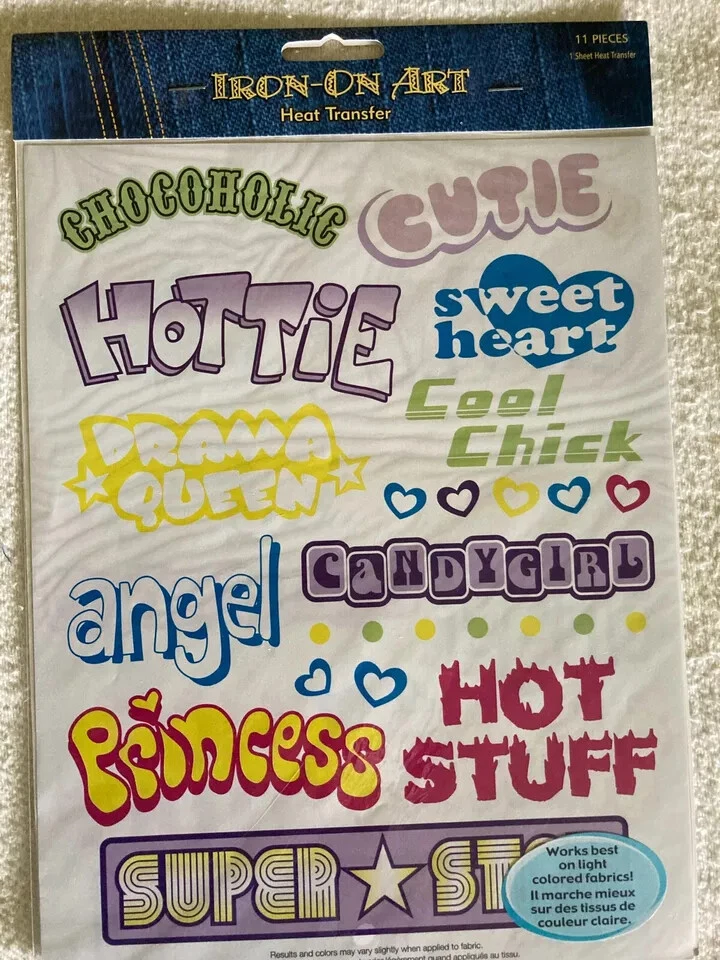 11 PIECES
1 Sheet Heat Transfer
IRON-ON ART
Heat Transfer
CHOCOHOLIC
CUTIE
HOTTiE
sweet
heart
Cool
Chick
DRAMA
QUEEN
angel
CaNDYGIRL
PRiNCESS
HOT
STUFF
SUPER ST
Works best
on light
colored fabrics!
Il marche mieux
sur des tissus de
couleur claire.
Results and colors may vary slightly when applied to fabric.
légèrement quand appliqués au tissu.